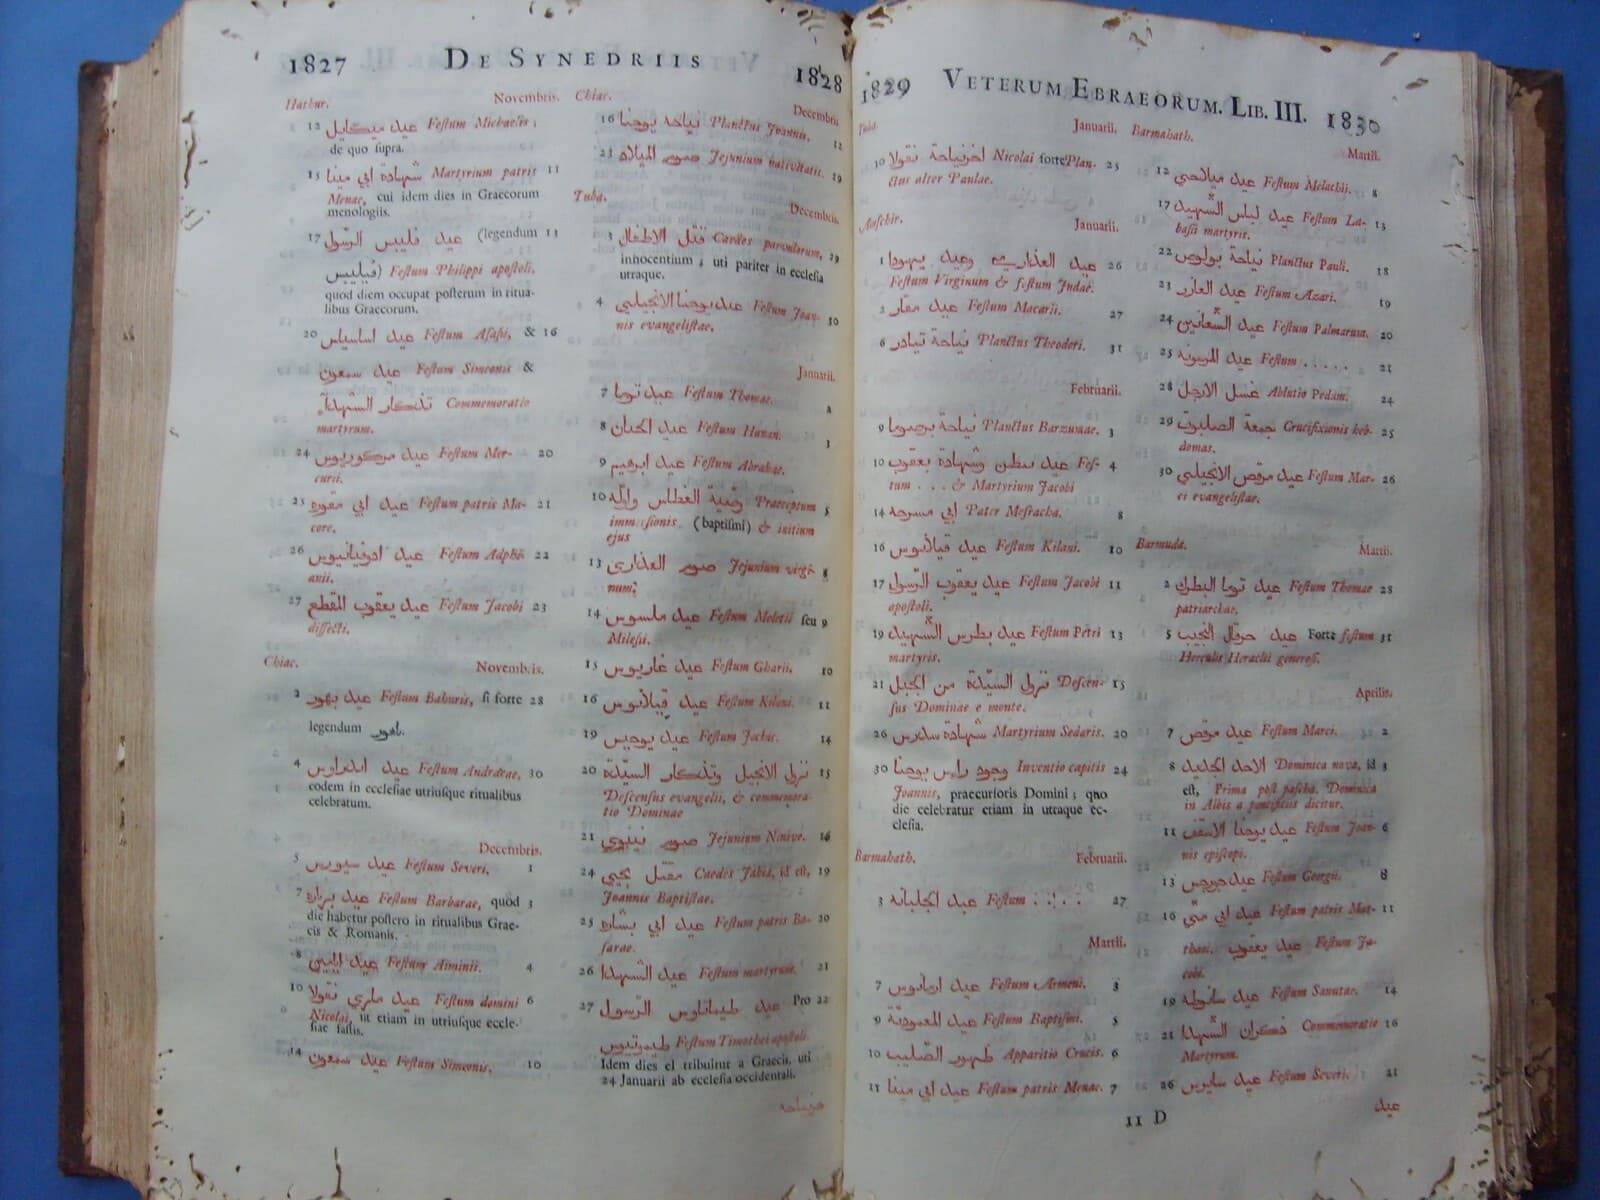 1827 DE SYNEDRIIS 1828
Hathur. Novembris.
12 عيد ميكايل Festum Michaelis;
de quo supra.
15 شهادة ابي مينا Martyrium patris 11
Menae, cui idem dies in Graecorum
menologiis.
17 عيد فليبس الرسول (legendum 13
فيليبس) Festum Philippi apostoli,
quod diem occupat posterum in ritua-
libus Graecorum.
20 عيد اساسياس Festum Asasii, & 16
عيد سمعون Festum Simeonis &
تذكار الشهداء Commemoratio
martyrum.
24 عيد مركوريوس Festum Mer- 20
curii.
25 عيد ابي مقوره Festum patris Ma- 21
core.
26 عيد Festum Adphē 22
anii.
27 عيد يعقوب المقطع Festum Jacobi 23
dissecti.
Chiac. Novembris.
2 عيد بهور Festum Bahuris, si forte 28
legendum باهور.
4 عيد اندراوس Festum Andreae, 30
eodem in ecclesiae utriusque ritualibus
celebratum.
Decembris.
5 عيد سيورس Festum Severi. 1
7 عيد بربارة Festum Barbarae, quod 3
die habetur postero in ritualibus Grae-
cis & Romanis.
8 عيد Festum Aiminii. 4
10 عيد ماري نقولا Festum domini 6
Nicolai, ut etiam in utriusque eccle-
siae fastis.
14 عيد سمعون Festum Simeonis. 10
Chiac. Decembris
16 نياحة يوحنا Planctus Joannis. 12
23 صوم الميلاد Jejunium nativitatis. 19
Tuba. Decembris.
3 قتل الاطفال Caedes parvulorum, 29
innocentium; uti pariter in ecclesia
utraque.
4 عيد يوحنا الانجيلي Festum Joan- 30
nis evangelistae.
Januarii.
7 عيد توما Festum Thomae. 2
8 عيد الحنان Festum Hunan. 3
9 عيد ابرهيم Festum Abrahae.
10 وصية الغطاس واوله Praeceptum 5
immersionis (baptismi) & initium
ejus
13 صوم العذارى Jejunium virgi- 8
num;
14 عيد ملسوس Festum Meletii seu 9
Milesii.
15 عيد غاريوس Festum Gharii. 10
16 عيد قيلانوس Festum Kilani. 11
19 عيد يوحيس Festum Jochis. 14
20 نزول الانجيل وتذكار السيّدة 15
Descensus evangelii, & commemora-
tio Dominae
21 صوم نينوي Jejunium Ninive. 16
24 مقتل يحيي Caedes Jahia, id est, 19
Joannis Baptistae.
25 عيد ابي بشارة Festum patris Ba- 20
sarae.
26 عيد الشهدا Festum martyrum. 21
27 عيد طيماتاوس الرسول Pro 22
طيموتيوس Festum Timothei apostoli.
Idem dies ei tribuitur a Graecis, uti
24 Januarii ab ecclesia occidentali.
1829 VETERUM EBRAEORUM. LIB. III. 1830
Tuba. Januarii.
10 اخرنياحة نقولا Nicolai forte Plan- 25
ctus alter Paulae.
Amschir. Januarii.
1 عيد العذاري وعيد يهودا 26
Festum Virginum & festum Judae.
2 عيد مقار Festum Macarii. 27
6 نياحة تيادر Planctus Theodori. 31
Februarii.
9 نياحة برصوما Planctus Barzumae. 3
10 عيد سطن وشهادة يعقوب Fes- 4
tum . . . & Martyrium Jacobi
14 ابي مسرحه Pater Mesracha. 8
16 عيد قيلانوس Festum Kilani. 10
17 عيد يعقوب الرّسول Festum Jacobi 11
apostoli.
19 عيد بطرس الشّهيد Festum Petri 13
martyris.
21 نزول السيّدة من الجبل Descen- 15
sus Dominae e monte.
26 شهادة سدرس Martyrium Sedaris. 20
30 وجود راس يوحنا Inventio capitis 24
Joannis, praecursoris Domini; quo
die celebratur etiam in utraque ec-
clesia.
Barmahath. Februarii.
3 عيد الجلبانه Festum . . . . 27
Martii.
7 عيد ارمانوس Festum Armeni. 3
9 عيد المعموديّة Festum Baptismi. 5
10 ظهور الصّليب Apparitio Crucis. 6
11 عيد ابي مينا Festum patris Menae. 7
11 D
Barmahath. Martii.
12 عيد ميلاخي Festum Melachii. 8
17 عيد لباس الشّهيد Festum La- 13
basii martyris.
22 نياحة بولوص Planctus Pauli. 18
23 عيد العازر Festum Azari. 19
24 عيد الشّعانين Festum Palmarum. 20
25 عيد Festum . . . . . 21
28 غسل الارجل Ablutio Pedum. 24
29 جمعة الصلبوت Crucifixionis heb- 25
domas.
30 عيد مرقص الانجيلي Festum Mar- 26
ci evangelistae.
Barmuda. Martii.
2 عيد توما البطرك Festum Thomae 28
patriarchae.
5 عيد حرقال النجيب Forte festum 31
Herculis Heraclii generosi.
Aprilis.
7 عيد مرقص Festum Marci. 2
8 الاحد الجديد Dominica nova, id 3
est, Prima post pascha. Dominica
in Albis a pontificiis dicitur.
11 عيد يوحنا الاسقف Festum Joan- 6
nis episcopi.
13 عيد جورجس Festum Georgii. 8
16 عيد ابي متّي Festum patris Mat- 11
thaei. عيد يعقوب Festum Ja-
cobi.
19 عيد سانوطه Festum Sanutae. 14
21 ذكران الشّهدا Commemoratio 16
Martyrum.
26 عيد سايرس Festum Severi. 21
عيد